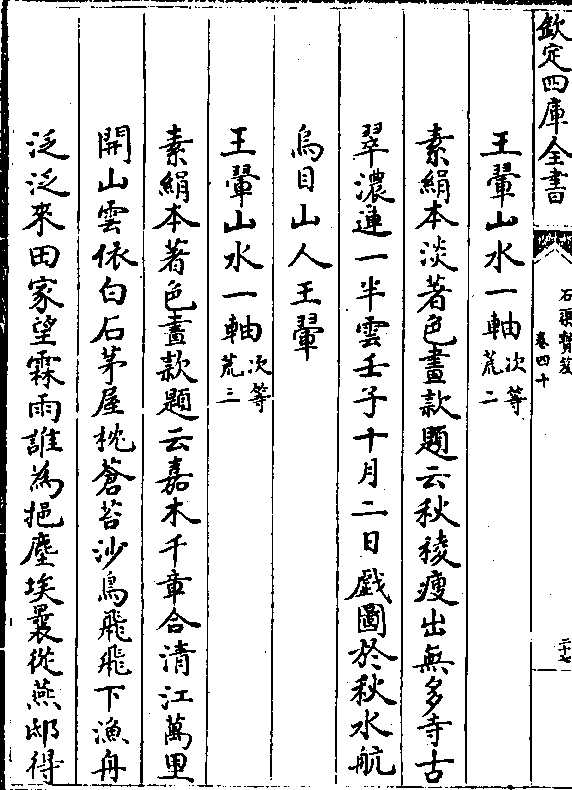 欽定四庫全書
石渠寶笈
卷四十
二十七
王翬山水一軸次等荒二
素絹本淡著色畫款題云秋稜瘦出無多寺古
翠濃連一半雲壬子十月二日戲圖於秋水航
烏目山人王翬
王翬山水一軸次等荒三
素絹本著色畫款題云嘉木千章合清江萬里
開山雲依白石茅屋枕蒼苔沙鳥飛飛下漁舟
泛泛來田家望霖雨誰為挹塵埃曩從燕邸得